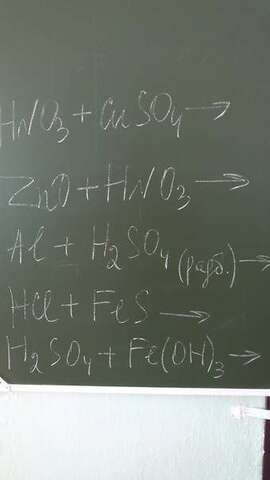 HNO₃ + CuSO₄ →
ZnO + HNO₃ →
Al + H₂SO₄ (разб.) →
HCl + FeS →
H₂SO₄ + Fe(OH)₃ →